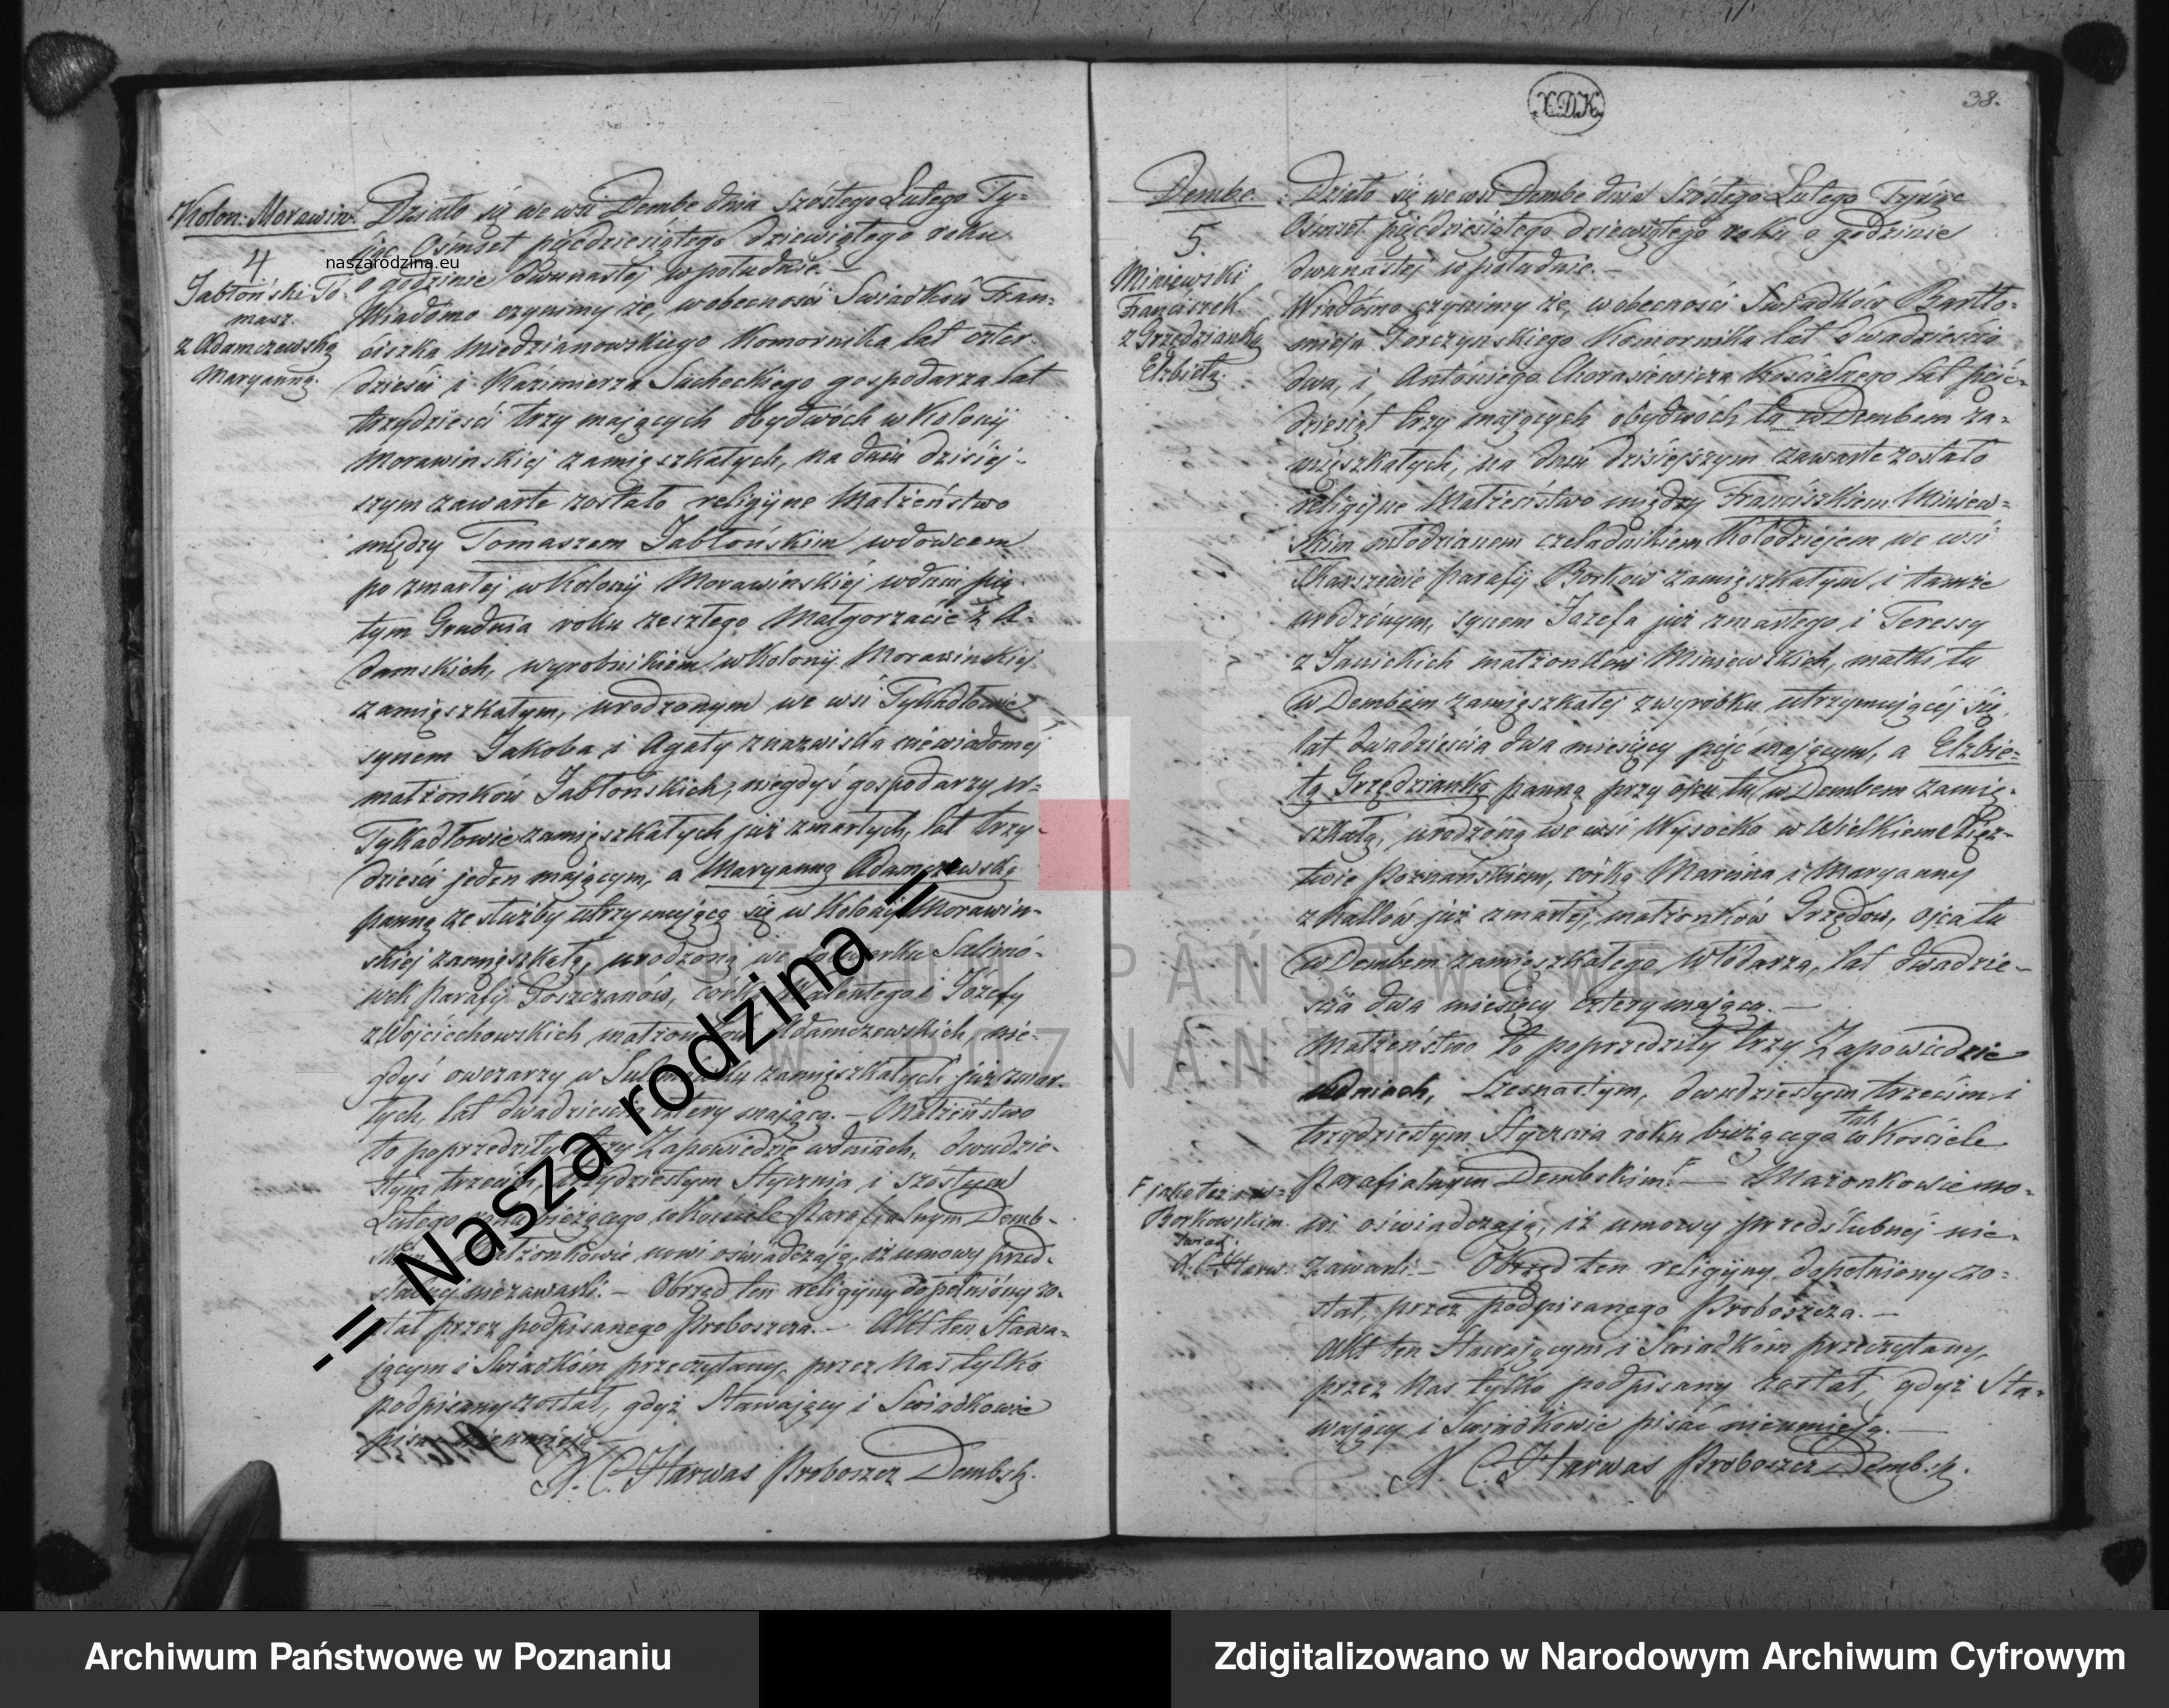 Kolon: Morawin.
4
Jabłoński To-
masz.
z Adamczewską
Maryanną.
Działo się we wsi Dembe dnia szóstego Lutego Ty-
siąc Ośmset pięcdziesiątego dziewiątego roku
naszarodzina.eu
o godzinie dwunastej w południe. —
Wiadomo czynimy że, w obecności Swiadków Fran-
ciszka Miedzianowskiego Komornika lat czter-
dzieści i Kazimierza Sucheckiego gospodarza lat
trzydzieści trzy mających obydwóch w Kolonij
Morawinskiej zamięszkałych, na dniu dzisiej-
szym zawarte zostało religijne Małżeństwo
między Tomaszem Jabłońskim wdowcem
po zmarłej w Kolonij Morawinskiéj w dniu pią-
tym Grudnia roku zeszłego Małgorzacie z A-
damskich, wyrobnikiem w Kolonij Morawinskiej
zamięszkałym, urodzonym we wsi Tykadłowie
synem Jakoba i Agaty z nazwiska niewiadomej
małżonków Jabłońskich, niegdyś gospodarzy w
Tykadłowie zamięszkałych już zmarłych, lat trzy-
dzieści jeden mającym, a Maryanną Adamczewską
panną ze służby utrzymującą się w Kolonij Morawin-
skiej zamięszkałą, urodzoną we Sulmó-
wek parafij Goszczanów, córką Walentego i Józefy
z Wojciechowskich małżonków Adamczewskich, nie-
gdyś owczarzy w zamięszkałych już zmar-
tych, lat dwadzieścia cztery mającą. — Małżeństwo
to poprzedziły trzy Zapowiedzie w dniach, dwudzie-
stym trzecim, trzydziestym Stycznia i szóstym
Lutego roku bieżącego w Kościele Parafialnym Demb-
skim Małżonkowie nowi oświadczają, iż umowy przed-
ślubnej niezawarli. — Obrzęd ten religijny dopełniony zo-
stał przez podpisanego Proboszcza. — Akt ten Stawa-
jącym i Swiadkóm przeczytany, przez Nas tylko
podpisany został, gdyż Stawający i Swiadkowie
pisać nieumieją. —
X. C. Harwas Proboszcz Dembsk.
-= Nasza rodzina =-
XDK
38.
Dembe
5.
Miniewski
Franciszek.
z Grzędzianką
Elżbietą.
Działo się we wsi Dembe dnia Szóstego Lutego Tysiąc
Ośmset pięcdziesiątego dziewiątego roku o godzinie
dwunastej w południe. —
Wiadomo czynimy że, w obecności Swiadków Bartło-
mieja Gorczyńskiego Komornika lat dwadzieścia
dwa, i Antoniego Chorasiewicza Kościelnego lat pięć-
dziesiąt trzy mających obydwóch tu w Dembem za-
mięszkałych, na dniu dzisiejszym zawarte zostało
religijne Małżeństwo między Franciszkiem Miniew-
skim młodzianem czeladnikiem Kołodziejem we wsi
Marszewie parafij Borków zamięszkałym, i tamże
urodzonym, synem Jozefa już zmarłego i Teressy
z Janickich małżonków Miniewskich, matki tu
w Dembem zamięszkałej z wyrobku utrzymującéj się,
lat dwadzieścia dwa miesięcy pięć mającym, a Elżbie-
tą Grzędzianką panną przy ojcu tu w Dembem zamię-
szkałą, urodzoną we wsi Wysocko w Wielkiem Xięz-
twie Poznańskiem, córką Marcina i Maryanny
z Kallów już zmarłej, małżonków Grzędów, ojca tu
w Dembem zamięszkałego Włódarza, lat dwadzie-
ścia dwa miesięcy cztery mającą. —
Małżeństwo to poprzedziły trzy Zapowiedzie
w dniach, szesnastym, dwudziestym trzecim i
trzydziestym Stycznia roku bieżącego tak w Kościele
Parafialnym Dembskim — Małżonkowie no-
jako też i w
Borkowskim.
wi oświadczają, iż umowy przedślubnej nie-
zawarli. — Obrzęd ten religijny dopełniony zo-
stał, przez podpisanego Proboszcza. —
Akt ten Stawającym i Swiadkóm przeczytany,
przez Nas tylko podpisany został, gdyż Sta-
wający i Swiadkowie pisać nieumieją. —
X. C. Harwas Proboszcz Demb:sk.
ARCHIWUM PAŃSTWOWE
W POZNANIU
Archiwum Państwowe w Poznaniu
Zdigitalizowano w Narodowym Archiwum Cyfrowym